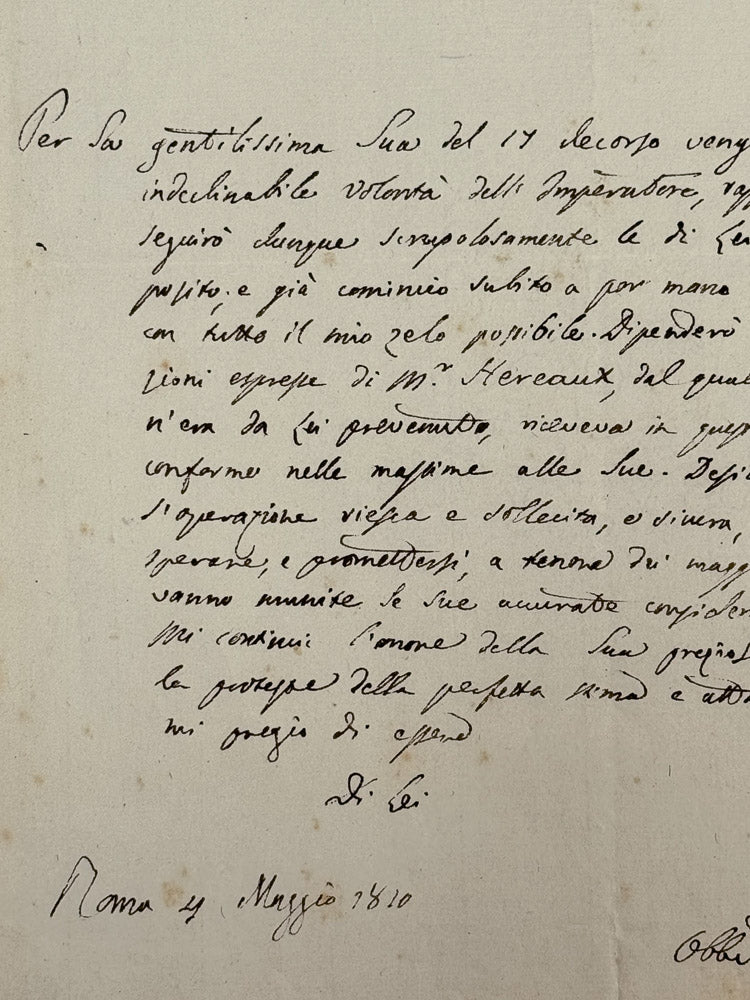 Per la gentilissima Sua del 17 decorso veng
indeclinabile volontà dell' Imperatore, rap
seguirò dunque scrupolosamente le di Lei
posito; e già comincio subito a por mano
con tutto il mio zelo possibile. Dipenderò
zioni espresse di M.r Hereaux, dal qual
n'era da Lei prevenuto, riceveva in ques
conforme nelle massime alle Sue. Desi
l'operazione riesca e sollecita, e sicura,
sperare, e promettersi, a tenore dei magg
vanno munite le sue accurate consider
Mi continui l'onore della Sua prezios
le proteste della perfetta stima e atta
mi pregio di essere
Di Lei
Roma 4 Maggio 1810
Obb